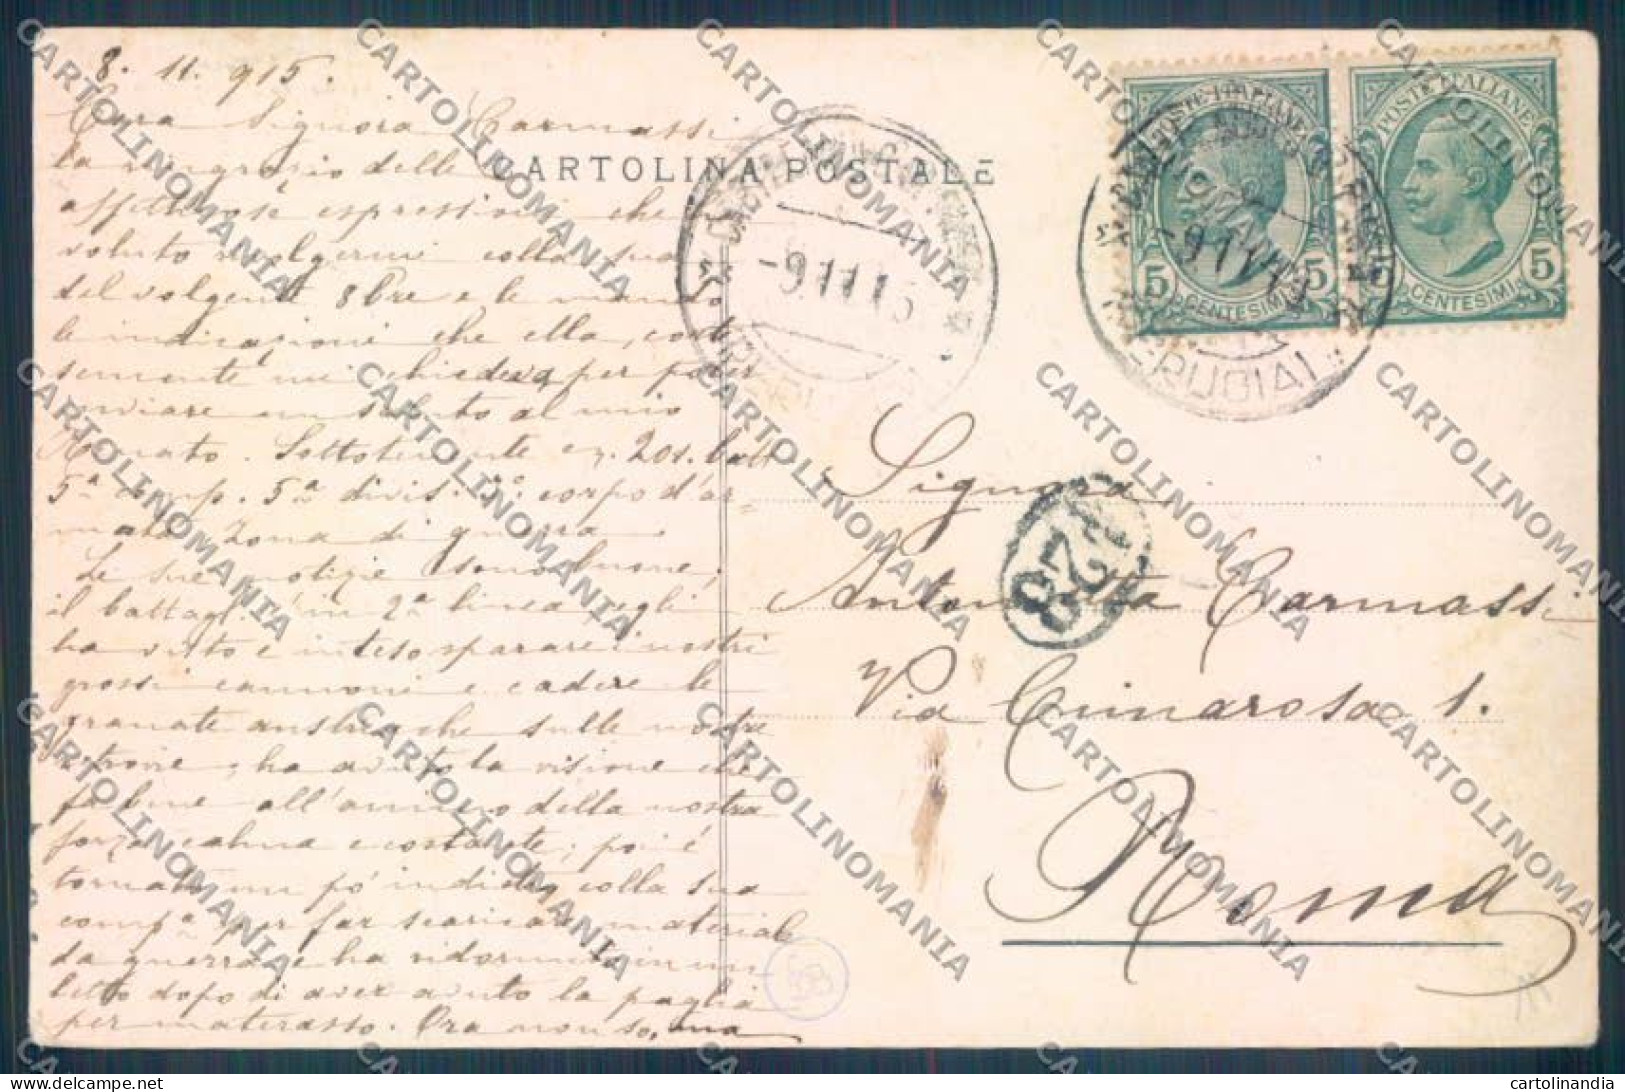 8. 11. 915.
Cara Signora Carmassi
la ringrazio delle
affettuose espressioni che ha
voluto rivolgermi colla sua
del volgente 8bre e le mando
le indicazioni che ella, corte
semente mi chiedeva per poter
inviare un saluto al mio
Renato. Sottotenente 201. batt
5ª comp. 5ª divis. 3º. corpo d'ar
mata Zona di guerra
Le sue notizie sono buone;
il battagl. è in 2ª linea, egli
ha visto e inteso sparare i nostri
grossi cannoni e cadere le
granate austriache sulle nostre
ha avuto la visione che
fa bene all'animo della nostra
forza calma e costante; poi è
tornato un po' indietro colla sua
compª per far scaricare materiale
da guerra e ha ridormito in un
letto dopo di aver avuto la paglia
per materasso. Ora non so, ma
CARTOLINA POSTALE
-9.11.15
POSTE ITALIANE
5 CENTESIMI 5
POSTE ITALIANE
CENTESIMI 5
PERUGIA
128
Signora
Antonietta Carmassi
Via Cimarosa 1.
Roma
CARTOLINOMANIA
www.delcampe.net
cartolinandia